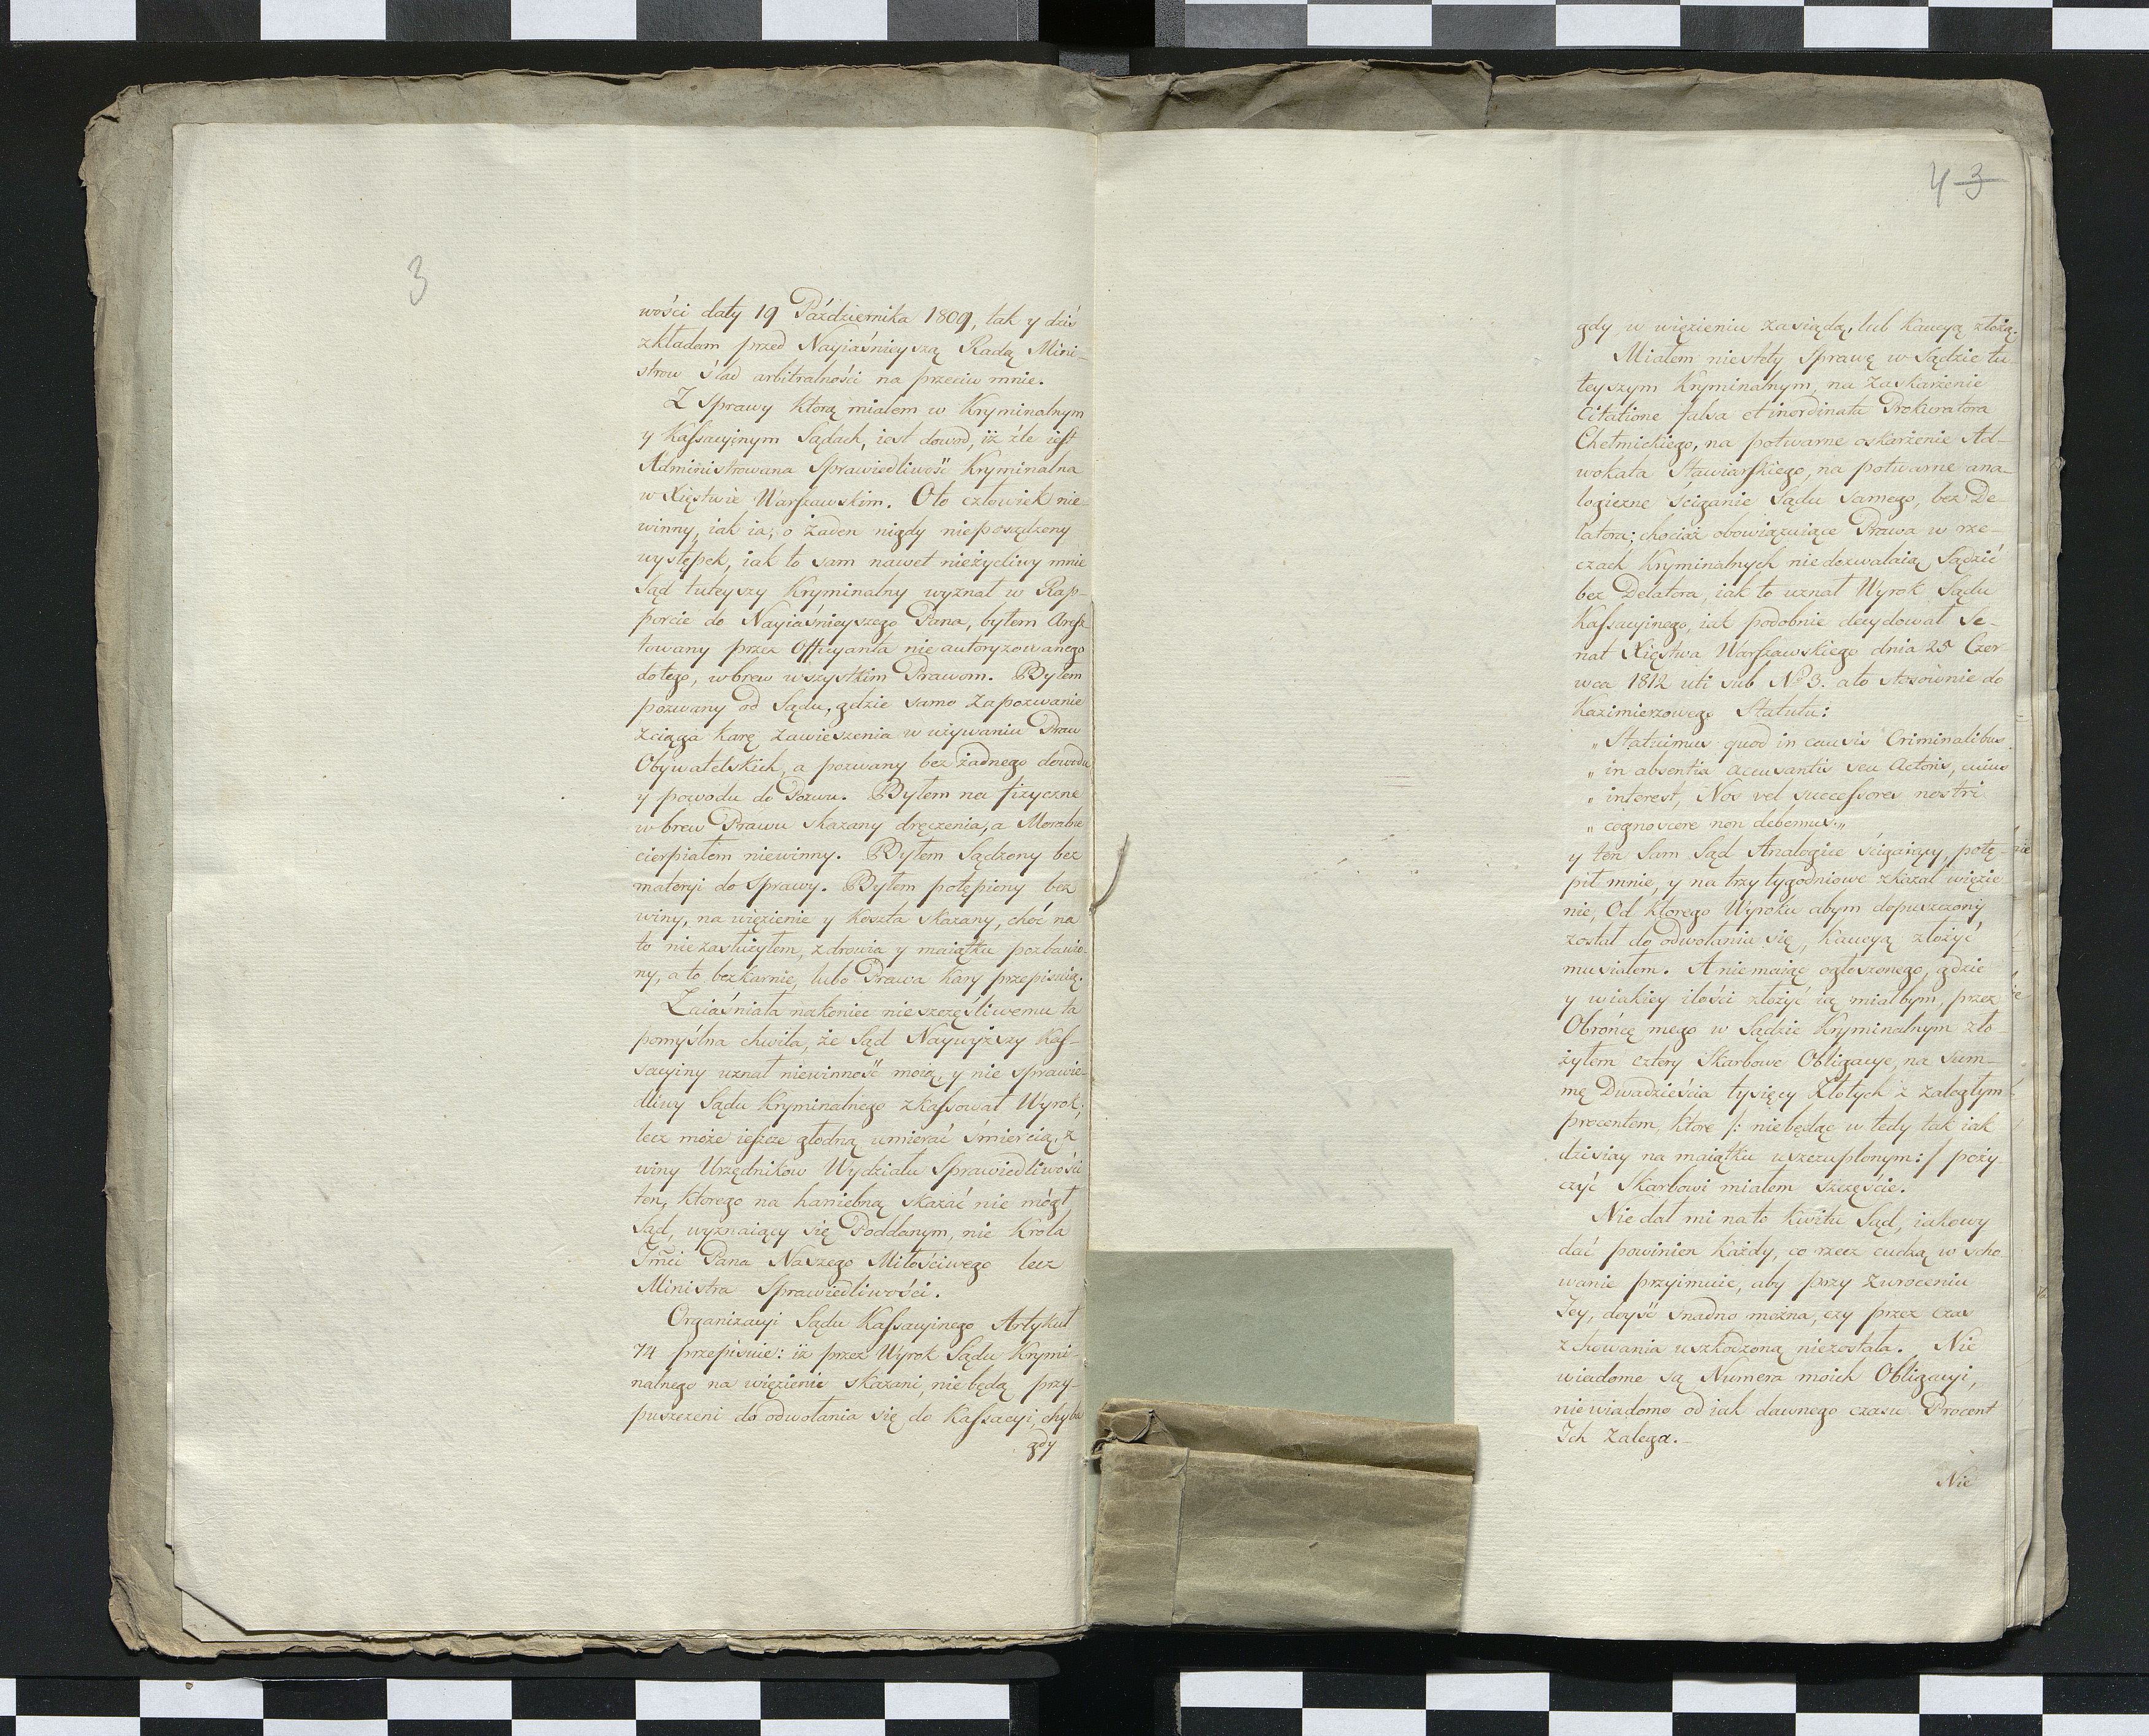 3
wości daty 19 Października 1809, tak y dziś
zkładam przed Nayiaśnieyszą Radą Mini-
strow ślad arbitralności na przeciw mnie.
Z Sprawy ktorą miałem w Kryminalnym
y Kassacyinym Sądach, iest dowod, iż źle iest
Administrowana Sprawiedliwość Kryminalna
w Xięstwie Warszawskim. Oto człowiek nie-
winny, iak ia, o żaden nigdy nieposądzony
występek, iak to sam nawet nieżyczliwy mnie
Sąd tuteyszy Kryminalny wyznał w Rap-
porcie do Nayiaśnieyszego Pana, byłem Aresz-
towany przez Officyanta nie autoryzowanego
do tego, wbrew wszystkim Prawom. Byłem
pozwany od Sądu, gdzie samo Zapozwanie
zciąga karę zawieszenia w używaniu Praw
Obywatelskich, a pozwany bez żadnego dowodu
y powodu do Pozwu. Byłem na fizyczne
wbrew Prawu skazany dręczenia, a Moralne
cierpiałem niewinny. Byłem Sądzony bez
materyi do Sprawy. Byłem potępiony bez
winy, na więzienie y koszta skazany, choć na
to niezasłużyłem, zdrowia y maiątku pozbawio-
ny, a to bezkarnie, lubo Prawa kary przepisuią.
Zaiaśniała nakoniec nieszczęśliwemu ta
pomyślna chwila, że Sąd Naywyższy Kas-
sacyiny uznał niewinność moią, y nie sprawie-
dliwy Sądu Kryminalnego zkassował Wyrok;
lecz może ieszcze głodną umierać śmiercią, z
winy Urzędnikow Wydziału Sprawiedliwości
ten, ktorego na haniebną skazać nie mógł
Sąd, wyznaiący się Poddanym, nie Króla
Jmci Pana Naszego Miłościwego lecz
Ministra Sprawiedliwości.
Organizacyi Sądu Kassacyinego Artykuł
74 przepisuie: iż przez Wyrok Sądu Krymi-
nalnego na więzienie skazani, nie będą przy-
puszczeni do odwołania się do Kassacyi, chyba
gdy
4 3
gdy w więzieniu zasiądą, lub Kaucyą złożą.
Miałem niestety Sprawę w Sądzie tu-
teyszym Kryminalnym, na Zaskarżenie
Citatione falsa et inordinata Prokuratora
Chełmickiego, na potwarne oskarżenie Ad-
wokata Stawiarskiego, na potwarne ana-
logiczne ściganie Sądu samego, bez De-
latora; chociaż obowiązuiące Prawa w rze-
czach Kryminalnych niedozwalaią Sądzić
bez Delatora, iak to uznał Wyrok Sądu
Kassacyinego, iak podobnie decydował Se-
nat Xięstwa Warszawskiego dnia 25 Czer-
wca 1812 uti sub No 3. a to stosownie do
Kazimierzowego Statutu:
„Statuimus quod in causis Criminalibus
„in absentia Accusantis seu Actoris, cuius
„interest, Nos vel successores nostri
„cognoscere non debemus„
y ten Sam Sąd Analogice ścigaiący, potę-
pił mnie, y na trzy tygodniowe zkazał więzie-
nie, Od ktorego Wyroku abym dopuszczony
został do odwołania się, Kaucyą złożyć
musiałem. A niemaiąc ogłoszonego, gdzie
y w iakiey ilości złożyć ią miałbym, przez
Obrońcę mego w Sądzie Kryminalnym zło-
żyłem cztery Skarbowe Obligacye, na Sum-
mę Dwadzieścia tysięcy Złotych z zaległym
procentem, ktore /: niebędąc w tedy tak iak
dzisiay na maiątku uszczuplonym :/ poży-
czyć Skarbowi miałem szczęście.
Nie dał mi na to Kwitu Sąd, iakowy
dać powinien każdy, co rzecz cudzą w scho-
wanie przyimuie, aby przy zwroceniu
Jey, doyść snadno można, czy przez czas
zchowania uszkodzoną niezostała. Nie
wiadome są Numera moich Obligacyi,
niewiadomo od iak dawnego czasu Procent
Ich Zalega.
Nie